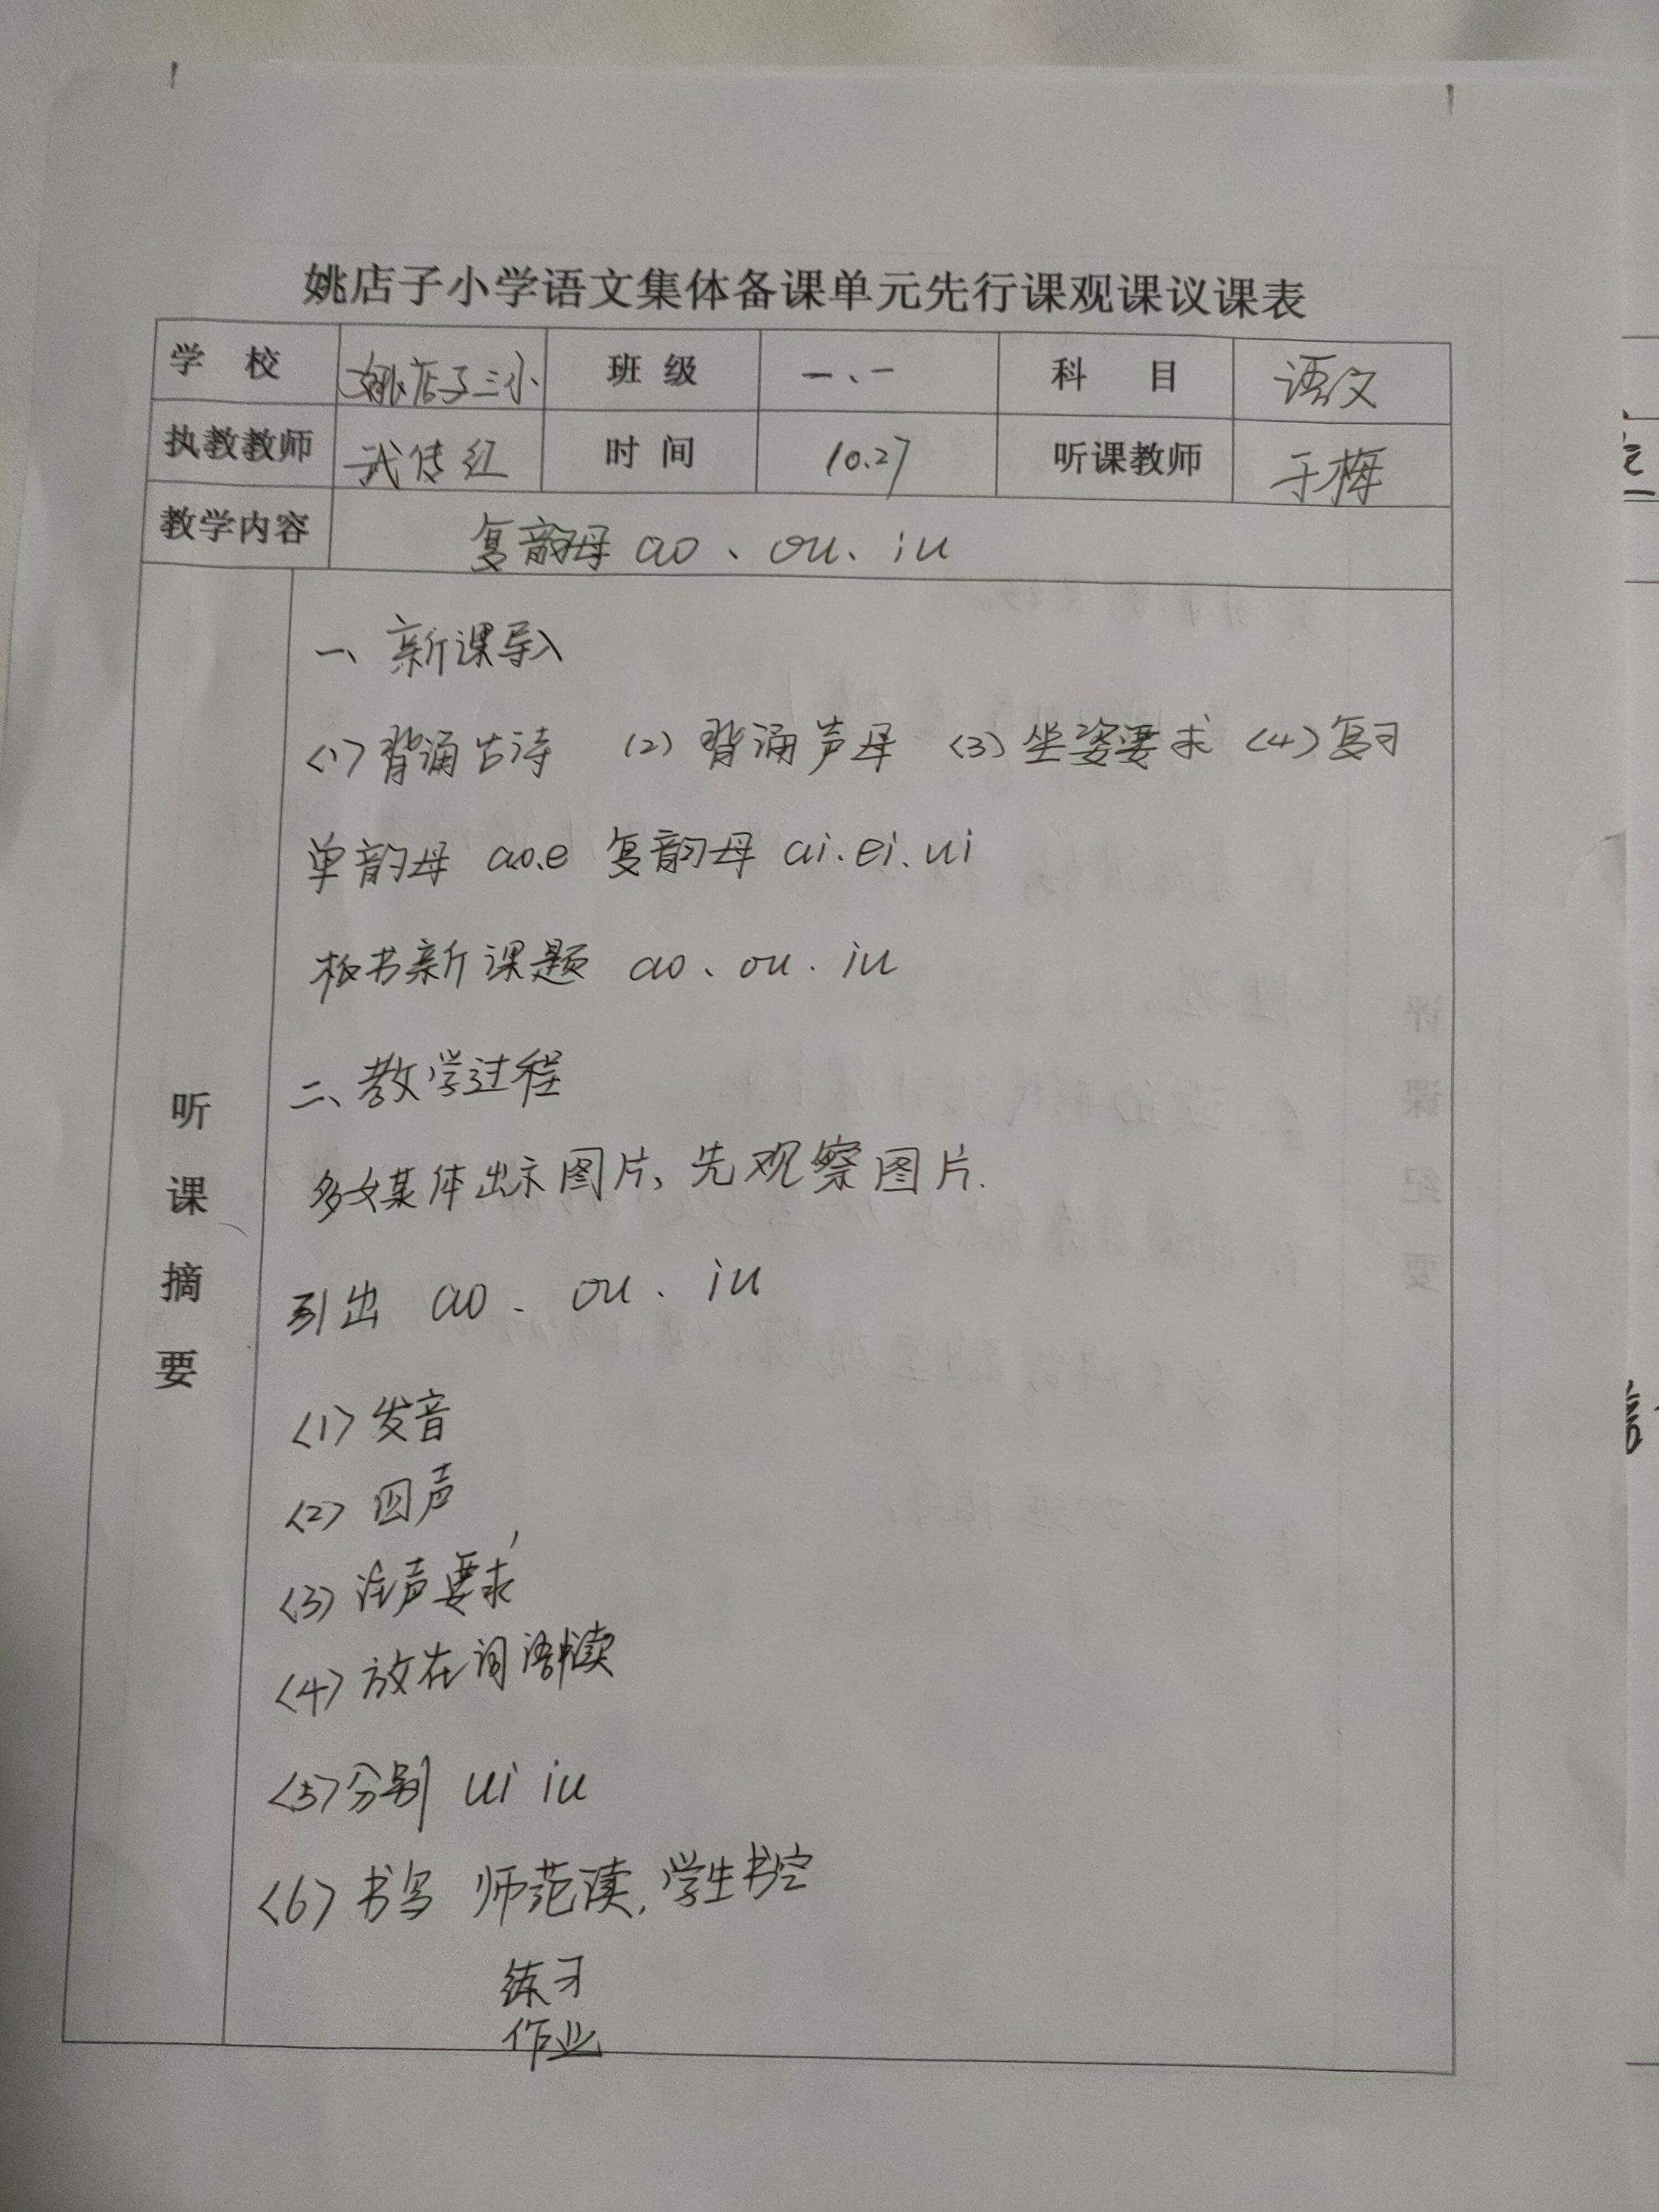 姚店子小学语文集体备课单元先行课观课议课表
学 校 姚店子三小 班 级 一、一 科 目 语文
执教教师 武传红 时 间 10.27 听课教师 于梅
教学内容 复韵母 ao、ou、iu
听课摘要
一、新课导入
(1)背诵古诗 (2)背诵声母 (3)坐姿要求 (4)复习
单韵母 a.o.e 复韵母 ai.ei.ui
板书新课题 ao、ou.iu
二、教学过程
多媒体出示图片,先观察图片.
引出 ao、ou、iu
(1)发音
(2)四声
(3)注声要求
(4)放在词语中读
(5)分别 ui iu
(6)书写 师范读,学生书空
练习
作业